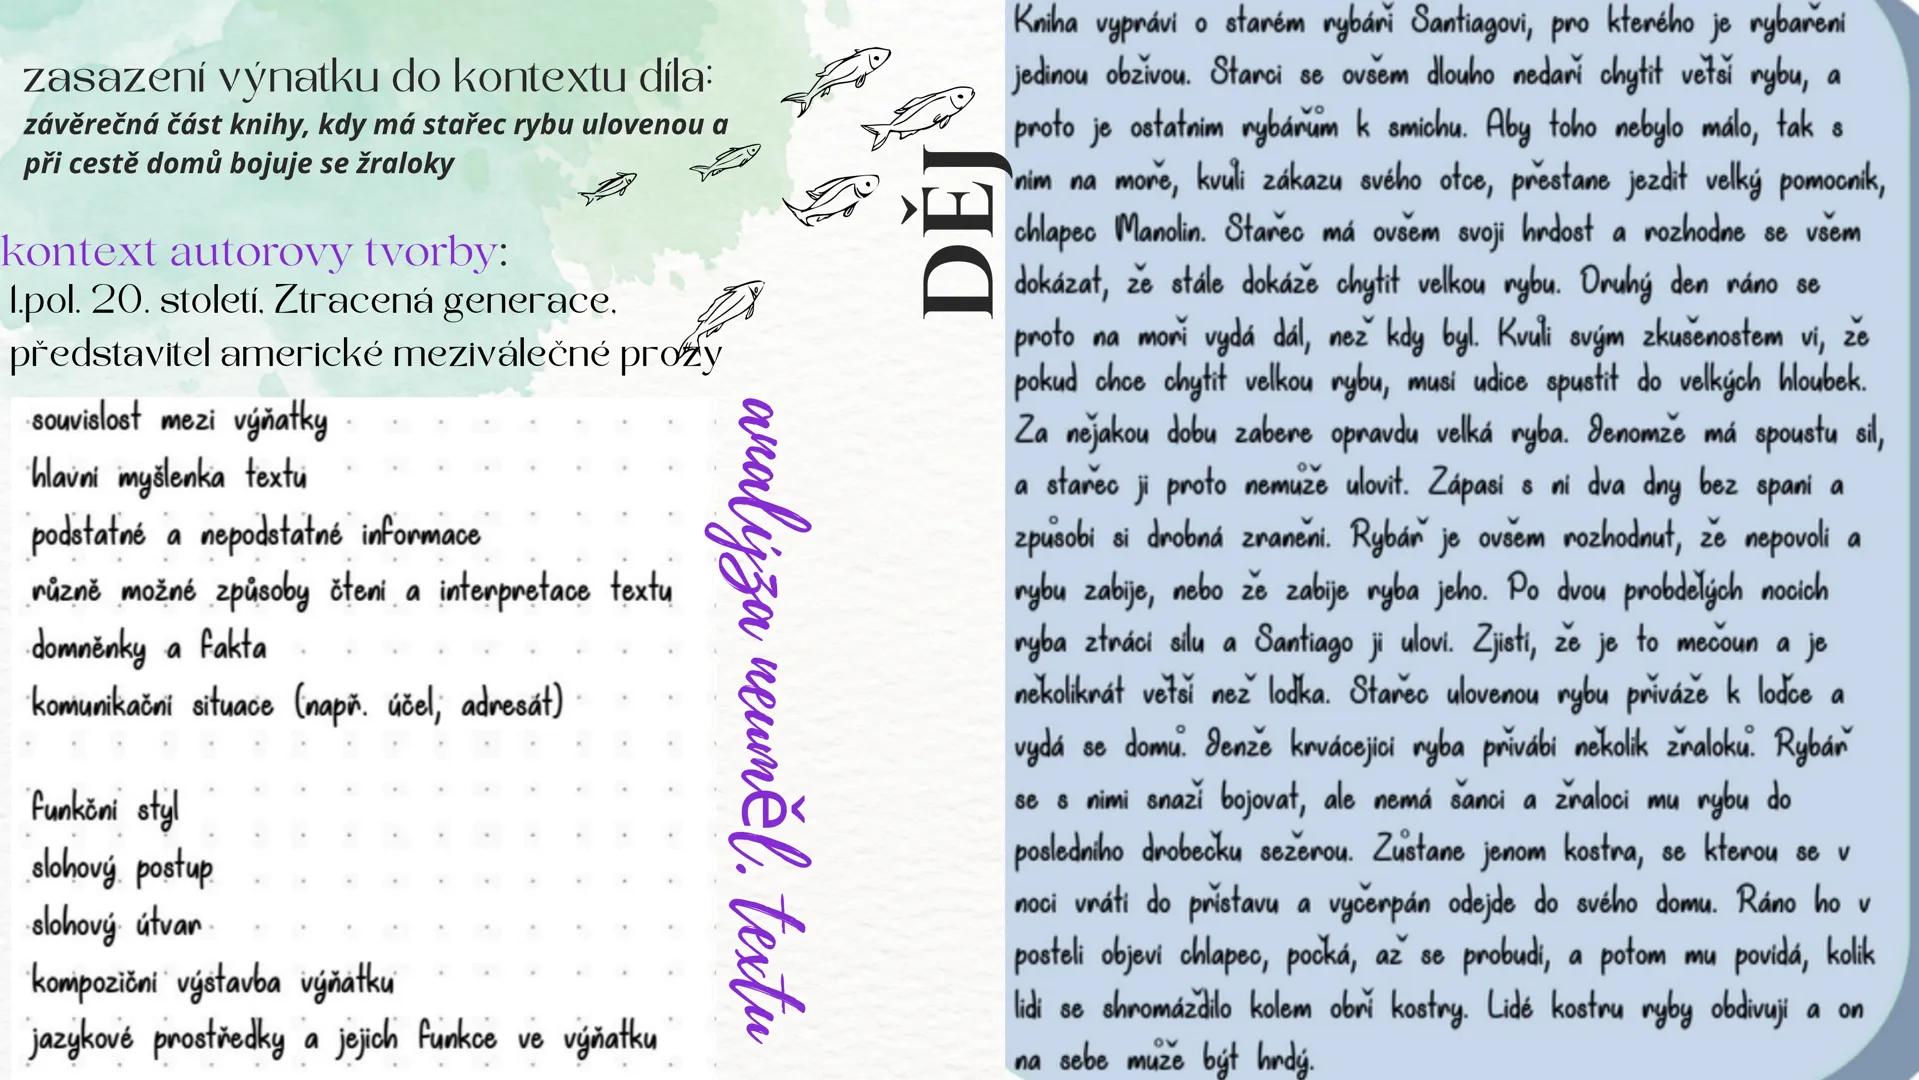 zasazení výnatku do kontextu díla:
závěrečná část knihy, kdy má stařec rybu ulovenou a
při cestě domů bojuje se žraloky
kontext autorovy tvorby:
1.pol. 20. století, Ztracená generace,
představitel americké meziválečné prozy
souvislost mezi výňatky
hlavní myšlenka textu
podstatné a nepodstatné informace
různě možné způsoby čtení a interpretace textu
domněnky a fakta
komunikační situace (např. účel, adresát)
funkční styl
slohový postup
slohový útvar
kompoziční výstavba výňatku
jazykové prostředky a jejich funkce ve výňatku
analýza neuměl. textu
DĚJ
Kniha vypráví o starém rybáři Santiagovi, pro kterého je rybaření
jedinou obživou. Starci se ovšem dlouho nedaří chytit větší rybu, a
proto je ostatním rybářům k smíchu. Aby toho nebylo málo, tak s
ním na moře, kvůli zákazu svého otce, přestane jezdit velký pomocník,
chlapec Manolin. Stařec má ovšem svoji hrdost a rozhodne se všem
dokázat, že stále dokáže chytit velkou rybu. Druhý den ráno se
proto na moři vydá dál, než kdy byl. Kvůli svým zkušenostem ví, že
pokud chce chytit velkou rybu, musí udice spustit do velkých hloubek.
Za nějakou dobu zabere opravdu velká ryba. Jenomže má spoustu sil,
a stařec ji proto nemůže ulovit. Zápasí s ní dva dny bez spaní a
způsobí si drobná zranění. Rybář je ovšem rozhodnut, že nepovolí a
rybu zabije, nebo že zabije ryba jeho. Po dvou probdělých nocích
ryba ztrácí sílu a Santiago ji uloví. Zjistí, že je to mečoun a je
několikrát větší než loďka. Stařec ulovenou rybu přiváže k loďce a
vydá se domů. Jenže krvácející ryba přivábí několik žraloků. Rybář
se s nimi snaží bojovat, ale nemá šanci a žraloci mu rybu do
posledního drobečku sežerou. Zůstane jenom kostra, se kterou se v
noci vrátí do přístavu a vyčerpán odejde do svého domu. Ráno ho v
posteli objeví chlapec, počká, až se probudí, a potom mu povídá, kolik
lidí se shromáždilo kolem obří kostry. Lidé kostru ryby obdivují a on
na sebe může být hrdý.